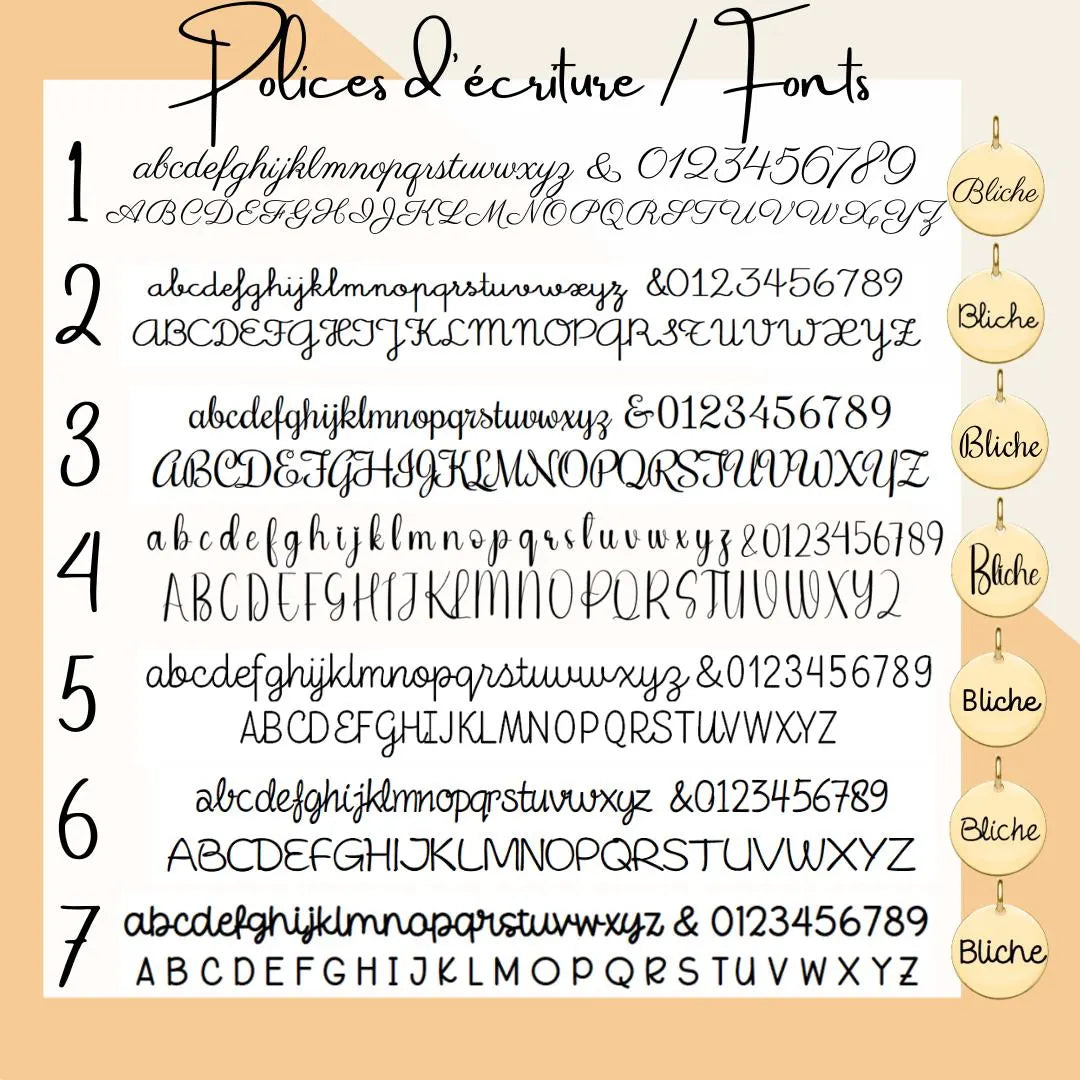 Polices d'écriture / Fonts
1
abcdefghijklmnopqrstuvwxyz & 0123456789
ABCDEFGHIJKLMNOPQRSTUVWXYZ
Bliche
2
abcdefghijklmnopqrstuvwxyz &0123456789
ABCDEFGHIJKLMNOPQRSTUVWXYZ
Bliche
3
abcdefghijklmnopqrstuvwxyz &0123456789
ABCDEFGHIJKLMNOPQRSTUVWXYZ
Bliche
4
a b c d e f g h i j k l m n o p q r s t u v w x y z & 0123456789
ABCDEFGHIJKLMNOPQRSTUVWXYZ
Bliche
5
abcdefghijklmnopqrstuvwxyz &0123456789
ABCDEFGHIJKLMNOPQRSTUVWXYZ
Bliche
6
abcdefghijklmnopqrstuvwxyz &0123456789
ABCDEFGHIJKLMNOPQRSTUVWXYZ
Bliche
7
abcdefghijklmnopqrstuvwxyz & 0123456789
A B C D E F G H I J K L M O P Q R S T U V W X Y Z
Bliche